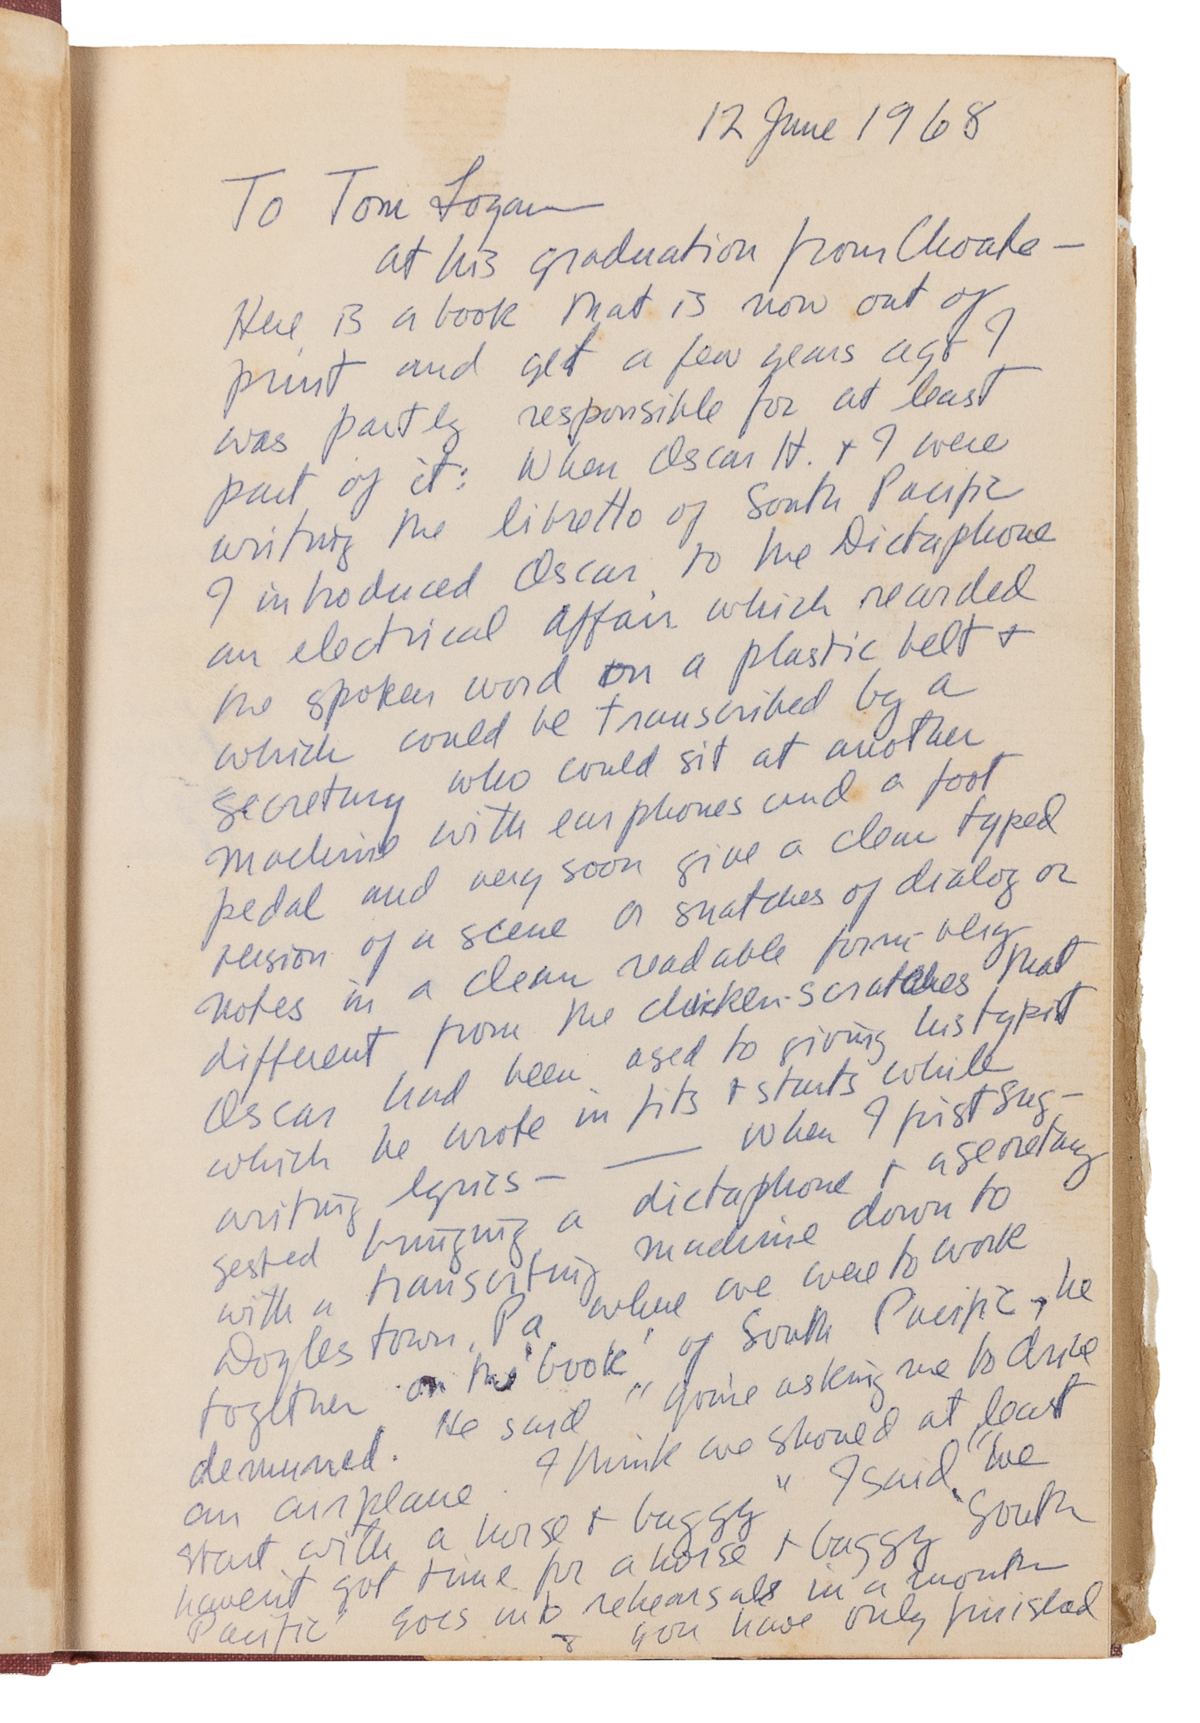 12 June 1968
To Tom Logan
at his graduation from Choate —
Here is a book that is now out of
print and yet a few years ago I
was partly responsible for at least
part of it: When Oscar H. + I were
writing the libretto of South Pacific
I introduced Oscar to the Dictaphone
an electrical affair which recorded
the spoken word on a plastic belt +
which could be transcribed by a
secretary who could sit at another
machine with earphones and a foot
pedal and very soon give a clear typed
version of a scene or snatches of dialog or
notes in a clean readable form very
different from the chicken-scratches that
Oscar had been used to giving his typist
which he wrote in fits + starts while
writing lyrics — —— When I first sug-
gested bringing a dictaphone + a secretary
with a transcribing machine down to
Doylestown, Pa where we were to work
together on the 'book' of South Pacific, he
demurred. He said "you're asking me to drive
an airplane. I think we should at least
start with a horse + buggy" I said, "We
havent got time for a horse + buggy 'South
Pacific' goes into rehearsals in a month
+ you have only finished